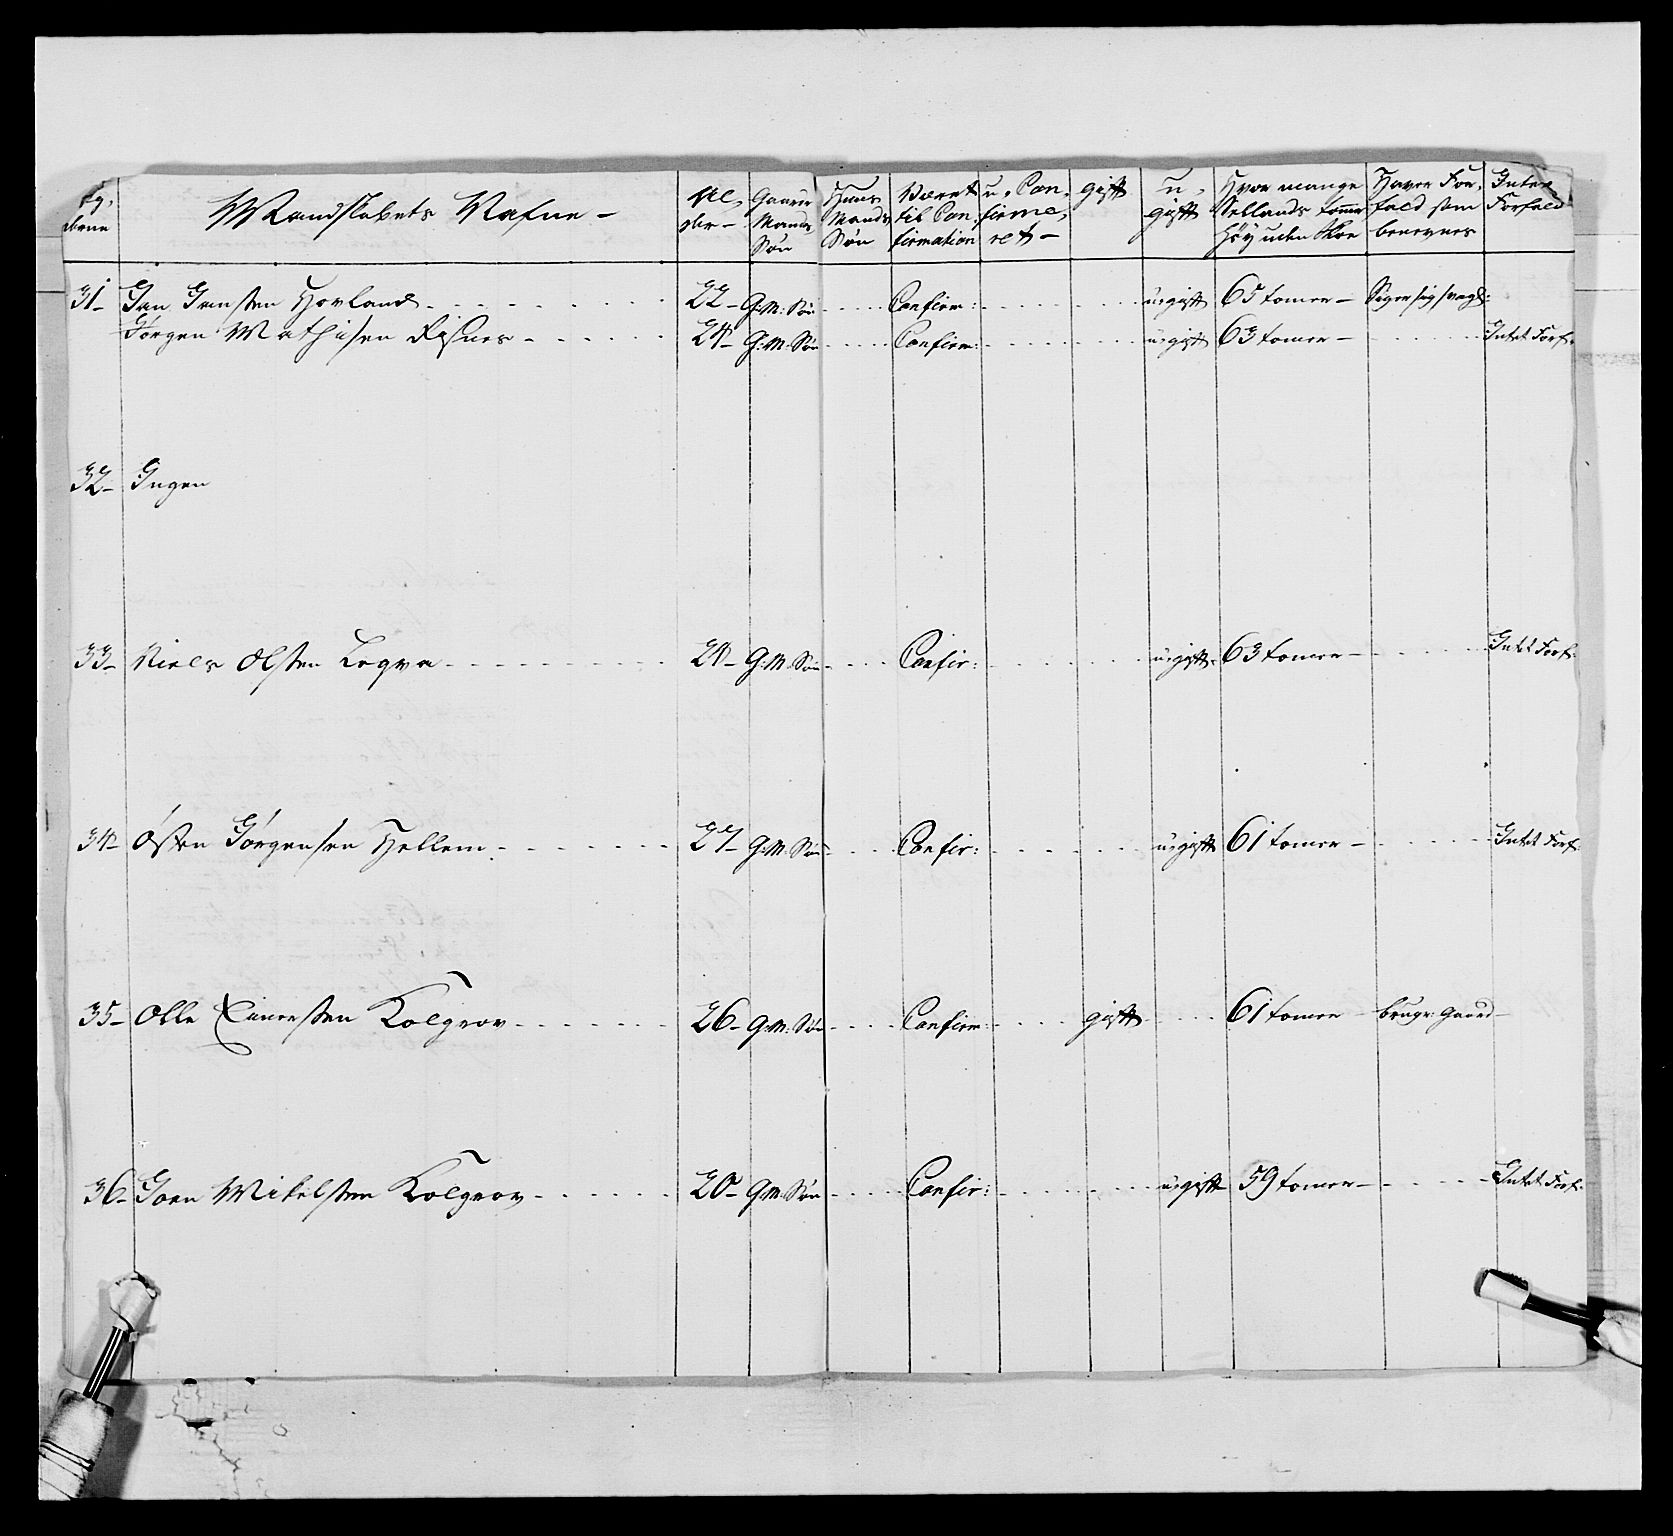 Mandskabets Nafne –
Al, der –
Gaard Mands Søn
Huus Mands Søn
Været til Con, firmation
u, Con, firme, ret –
gift
u, gift
Hvor mange Sellands tomer Høy uden Skoe
Haver For, fald som benevnes
Intet Forfald
31 – Jan Jansen Hovland 22 – G: M: Søn Confirm: u: gift 65 tomer – Siger sig svagl:
Jørgen Mathisen Risnes 24 – G: M: Søn Confirm: u: gift 63 tomer – Intet Forf:
32 – Ingen
33 – Niels Olsen 24 – G: M: Søn Confir: u: gift 63 tomer – Intet Forf:
34 – Østen Jørgensen Hellem 27 – G: M: Søn Confir: u: gift 61 tomer – Intet Forf:
35 – Olle Kolgrov 26 – G: M: Søn Confirm: gift 61 tomer – brugr: Gaard –
36 – Joen Mikelsen Kolgrov 20 – G: M: Søn Confir: u: gift 59 tomer – Intet Forf: